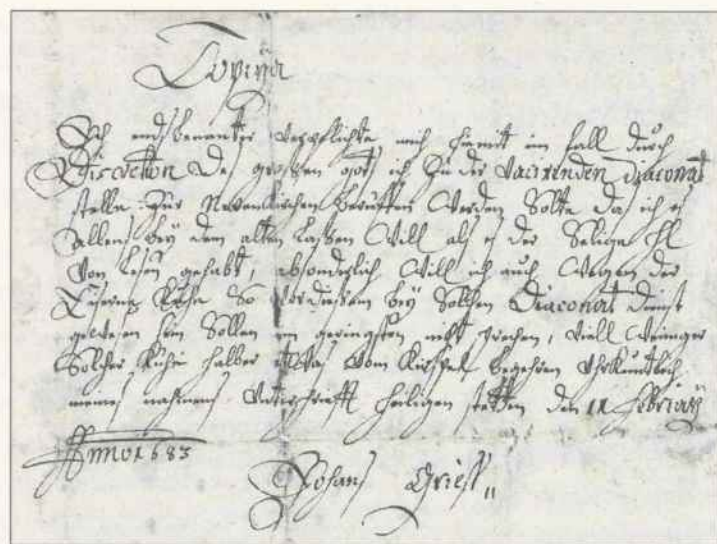 Copiya
Ich endsbenanter verpflichte mich hiemit im fall durch
Discretion des grossen gots ich zu der vacirenden Diaconat
stelle zur Nevenkirchen beruffen werden solte das ich es
allens bey dem alten lassen will als es der Selige Hl
von lesen gehabt, absonderlich will ich auch wegen der
Eisernen Kühe so vordiesem bey solchen Diaconat dienst
gewesen sein sollen im geringsten nicht sprechen, viell weiniger
solcher Kühe halber etwas vom Kirspel begehren Uhrkuntlich
meines nahmens Unterschrifft heiligen stetten den 11 Februarij
Anno 1683
Johans Grieff